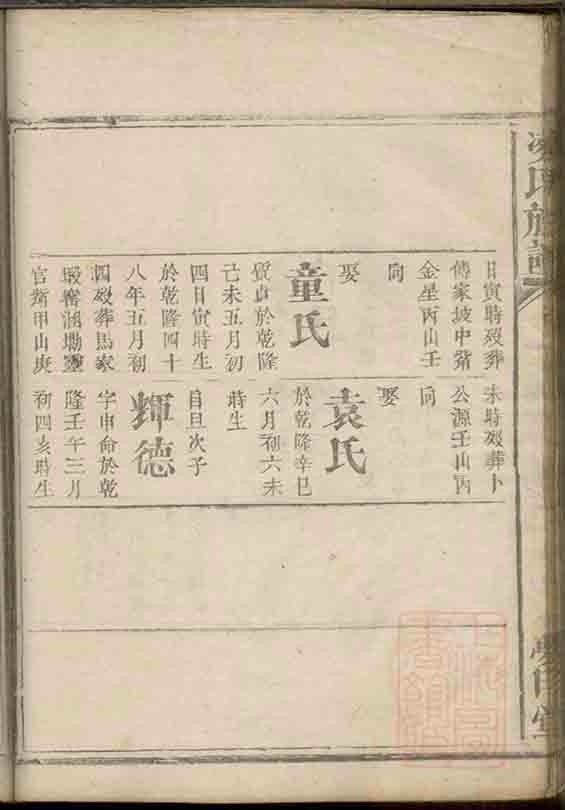 日寅時歿葬
傅家坡中背
金星丙山壬
向
娶
童氏
質貞於乾隆
己未五月初
四日寅時生
於乾隆四十
八年五月初
四歿葬馬家
塅窑涵坳靈
官嘴甲山庚
未時歿葬卜
公源壬山丙
向
娶
袁氏
於乾隆辛巳
六月初六未
時生
自旦次子
輝德
字申命於乾
隆壬午三月
初四亥時生
氏族譜
堂